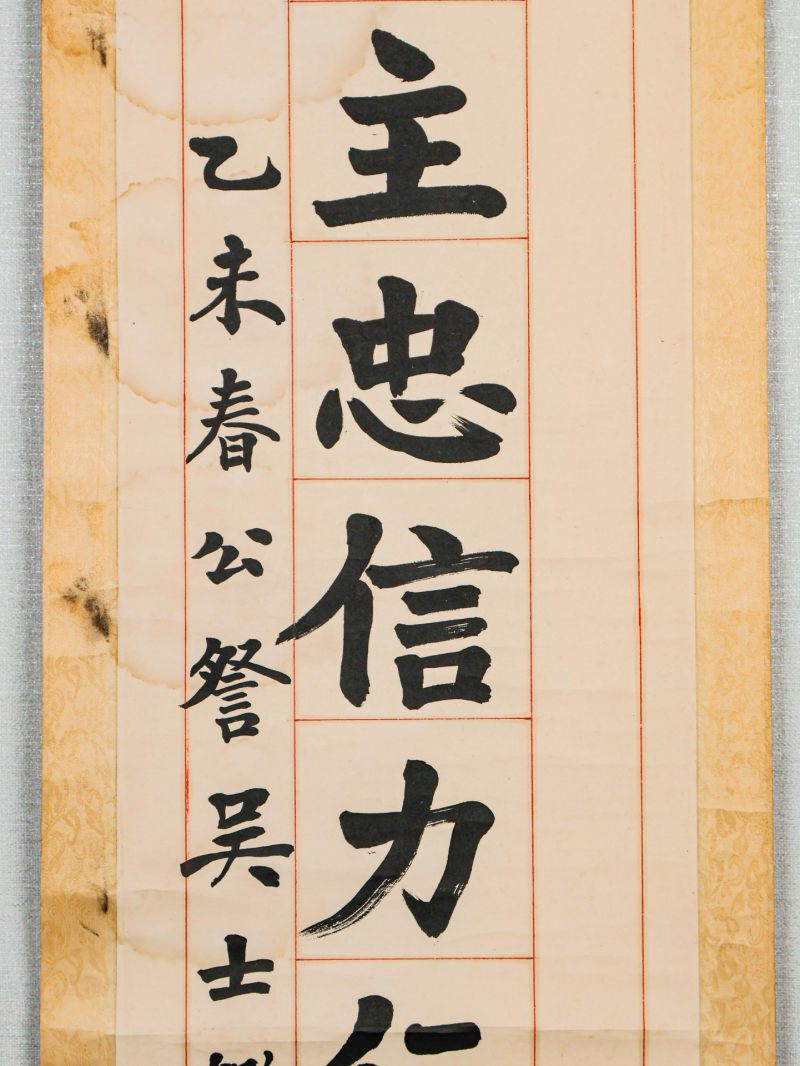 主忠信力
乙未春公詧吳士